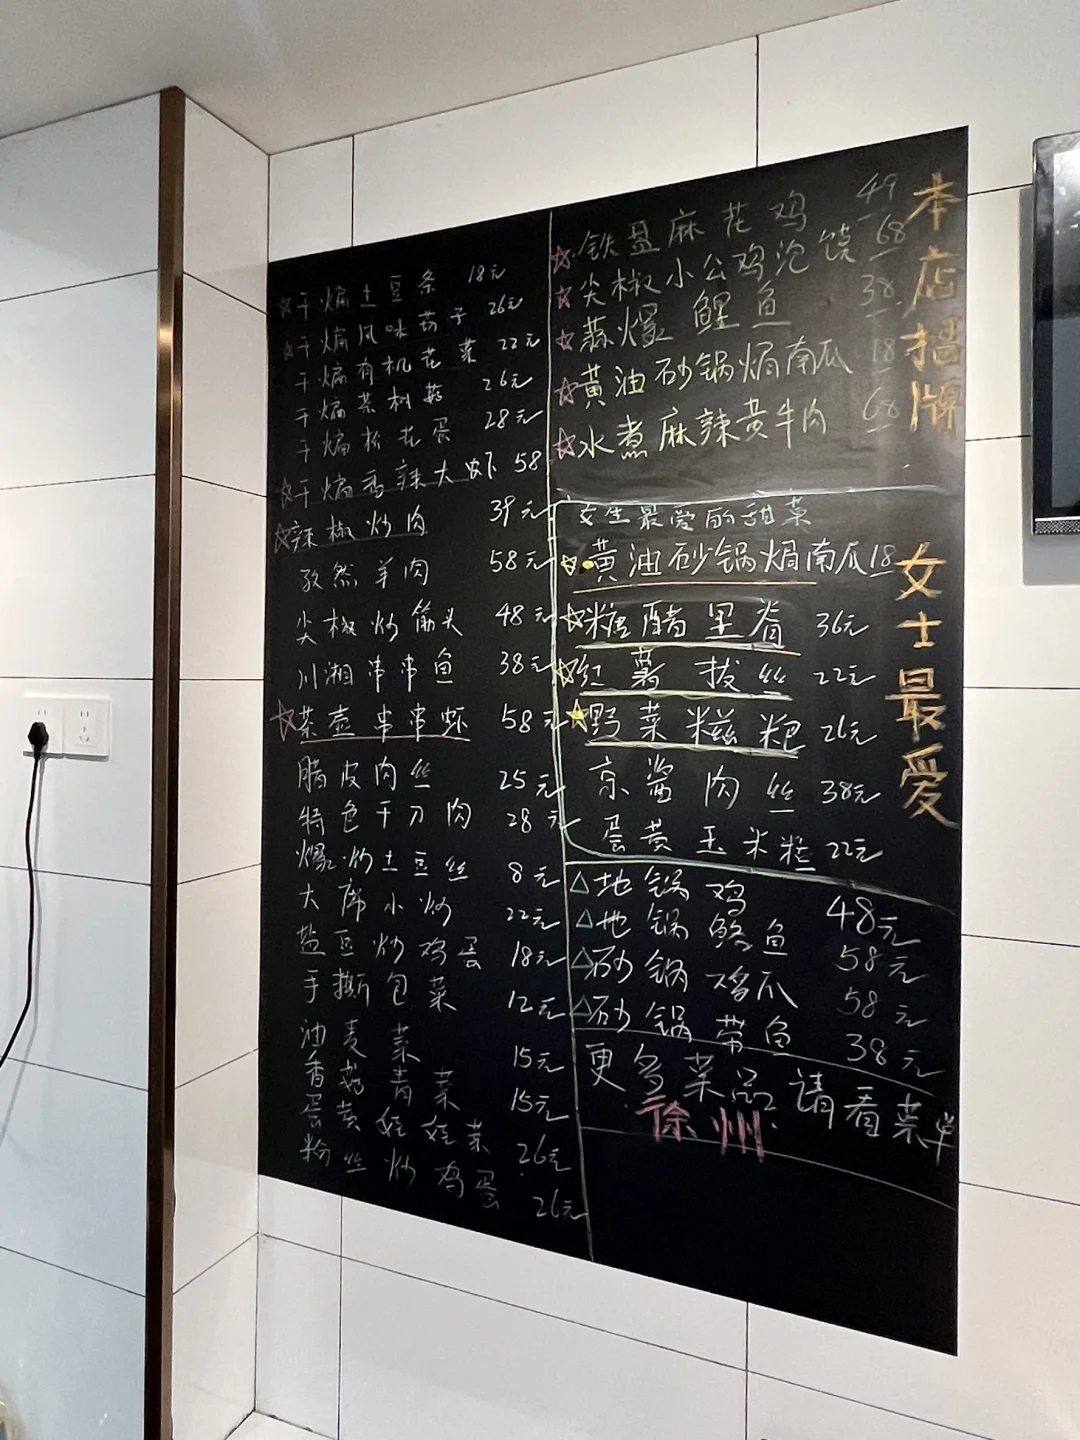 干煸土豆条 18元
干煸风味茄子 26元
干煸有机花菜 22元
干煸茶树菇 26元
干煸松花蛋 28元
干煸香辣大虾 58
辣椒炒肉 39元
孜然羊肉 58元
尖椒炒筋头 48元
川湘串串鱼 38元
茶壶串串虾 58元
腊皮肉丝 25元
特色千刀肉 28元
爆炒土豆丝 8元
大席小炒 22元
盐豆炒鸡蛋 18元
手撕包菜 12元
油麦菜 15元
香菇青菜 15元
蛋黄娃娃菜 26元
粉丝炒鸡蛋 26元
本店招牌
铁盘麻花鸡 49
尖椒小公鸡泡馍 68
蒜爆鲤鱼 38
黄油砂锅焗南瓜 18
水煮麻辣黄牛肉 68
女士最爱
女生最爱的甜菜
黄油砂锅焗南瓜 18
糖醋里脊 36元
红薯拔丝 22元
野菜糍粑 26元
京酱肉丝 38元
蛋黄玉米粒 22元
△地锅鸡 48元
△地锅鱼 58元
△砂锅鸡爪 58元
△砂锅带鱼 38元
更多菜品请看菜单
徐州